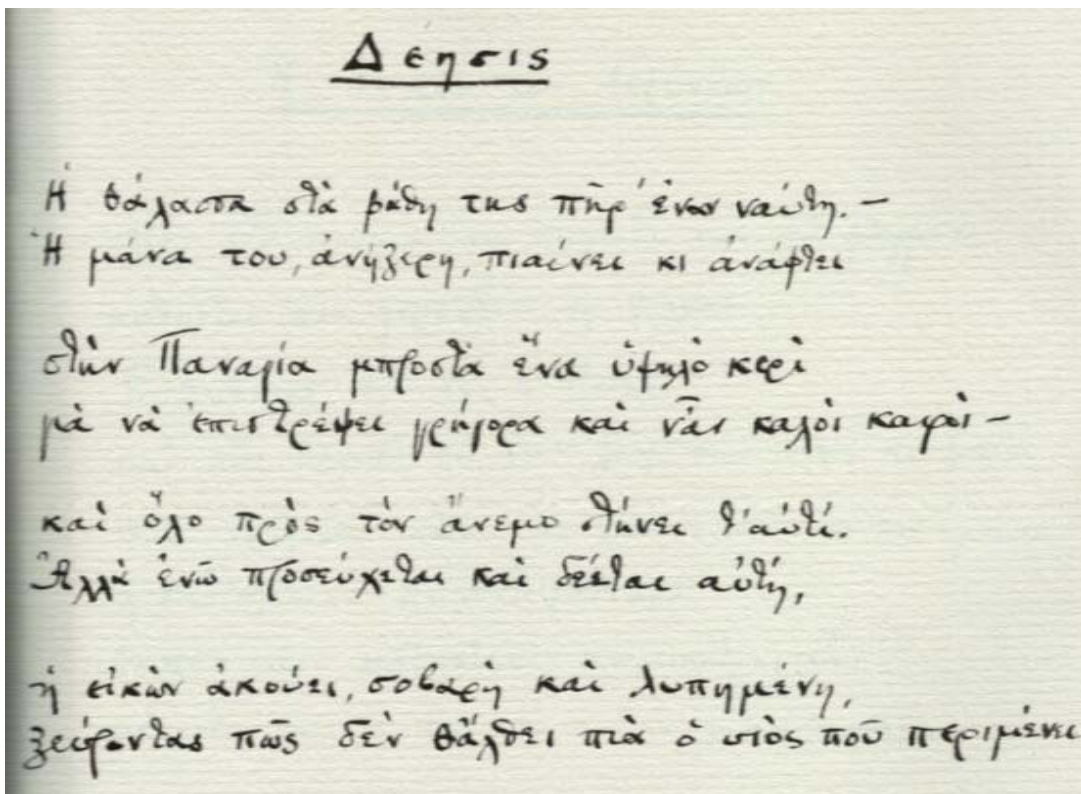 Δέησις
Ἡ θάλασσα στὰ βάθη της πῆρ' ἕναν ναύτη.—
Ἡ μάνα του, ἀνήξερη, πιαίνει κι ἀνάφτει
στὴν Παναγία μπροστὰ ἕνα ὑψηλὸ κερὶ
γιὰ νὰ ἐπιστρέψει γρήγορα καὶ νἆν καλοὶ καιροὶ—
καὶ ὅλο πρὸς τὸν ἄνεμο στήνει τ' αὐτί.
Ἀλλὰ ἐνῶ προσεύχεται καὶ δέεται αὐτή,
ἡ εἰκὼν ἀκούει, σοβαρὴ καὶ λυπημένη,
ξεύροντας πῶς δὲν θἄλθει πιὰ ὁ υἱὸς ποῦ περιμένει